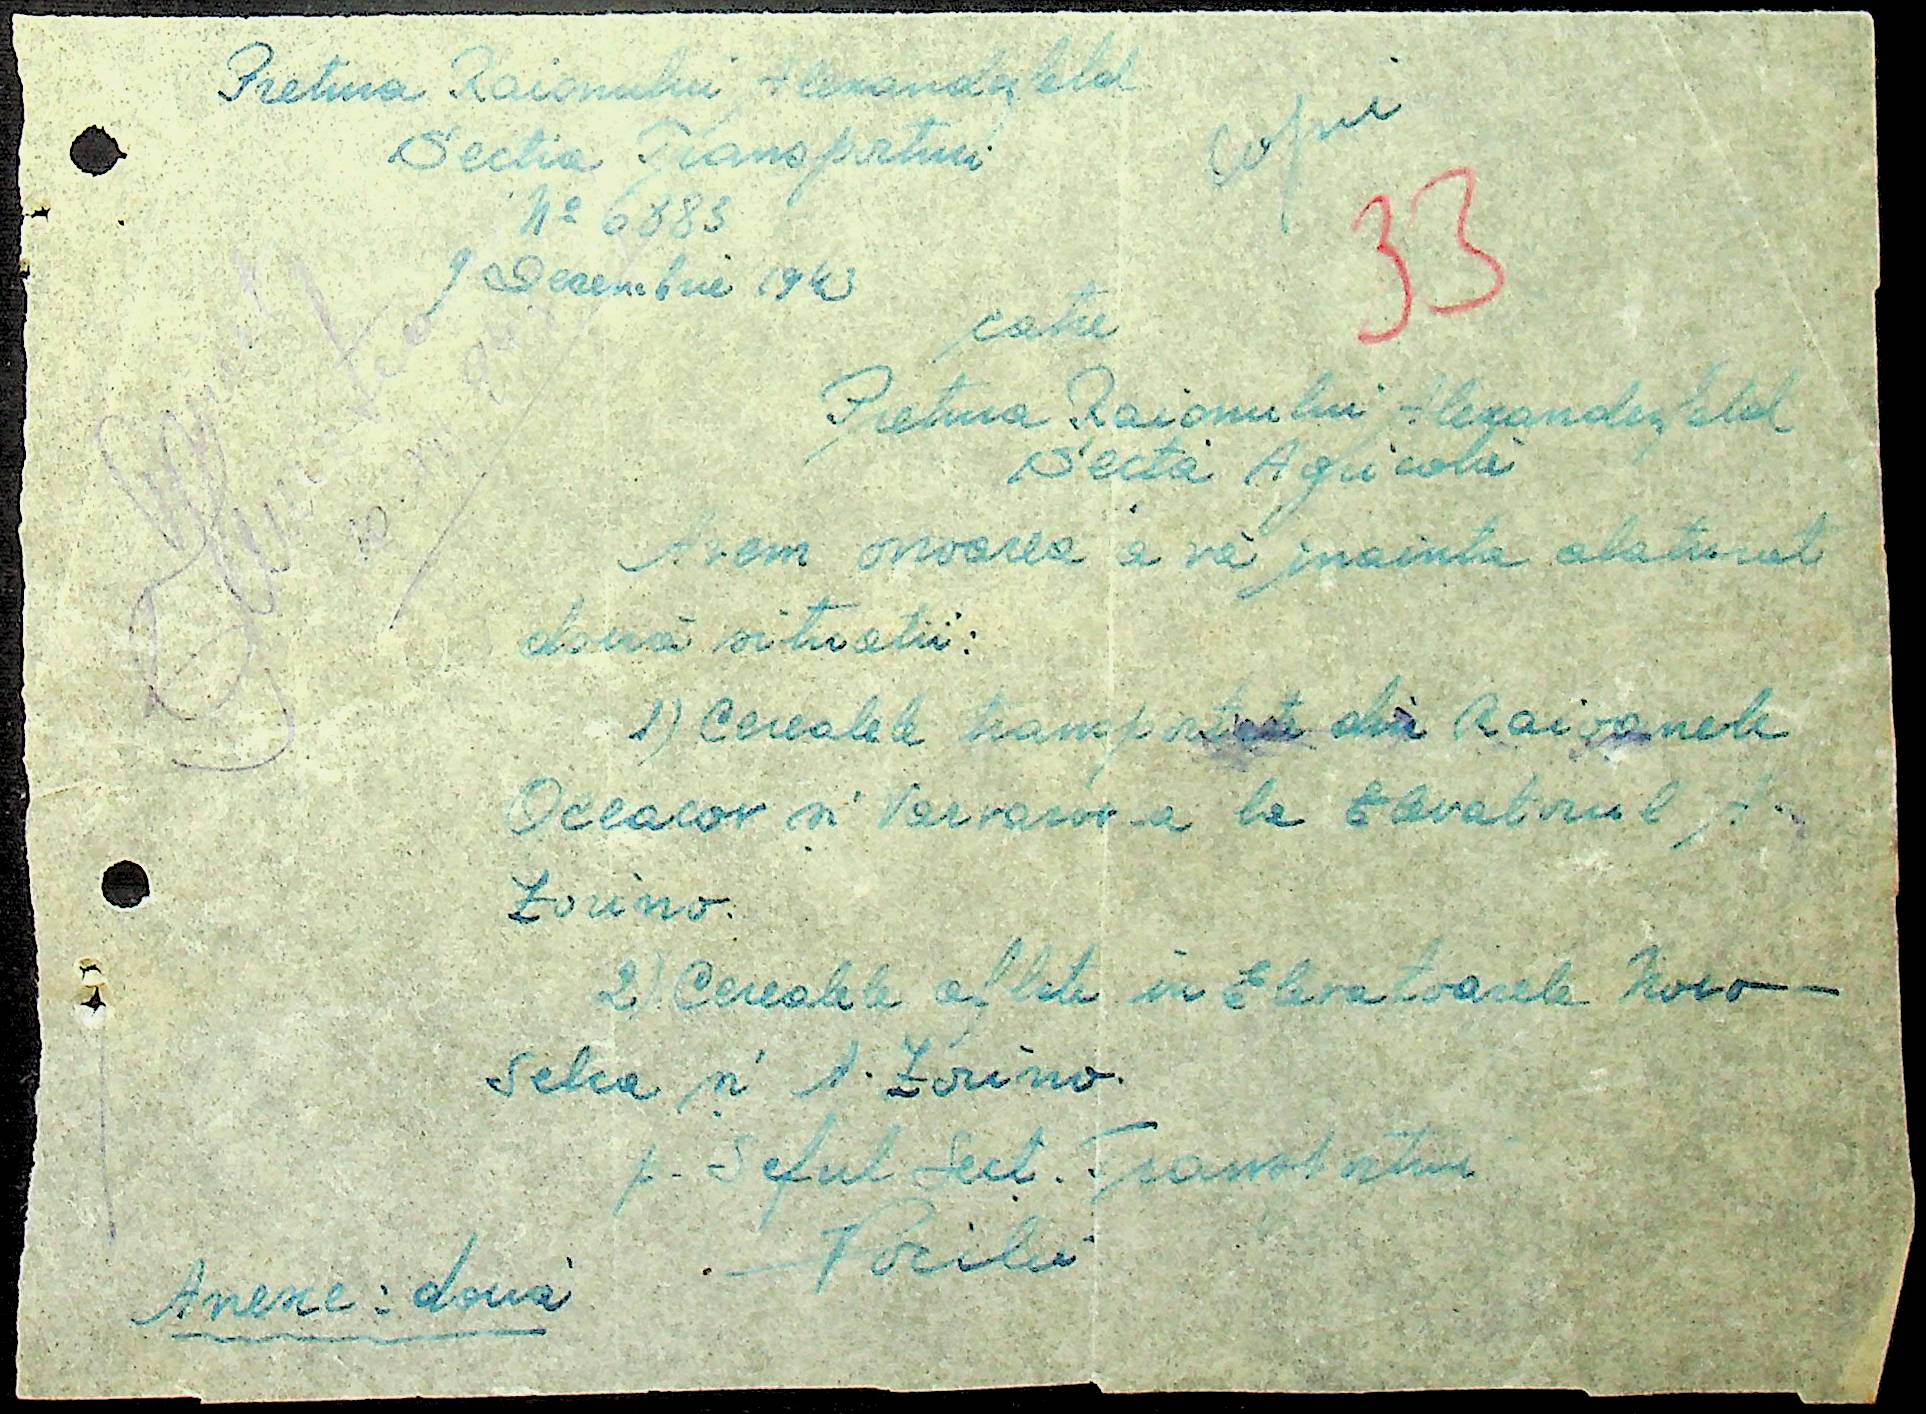 Pretura Raionului Alexanderfeld
Copie
Sectia Transporturi
33
Nº 6883
9 Decembrie 1943
catre
Pretura Raionului Alexanderfeld
Secta Agricolă
Avem onoarea a vă inainta alaturat
două situatii:
1) Cerealele transportate din Raioanele
Oceacov si Varvarovca la Elevatorul A.
Zorino.
2) Cerealele aflate in Elevatoarele Novo-
Selca si A. Zorino.
p. Seful Sect. Transporturi
Anexe: două